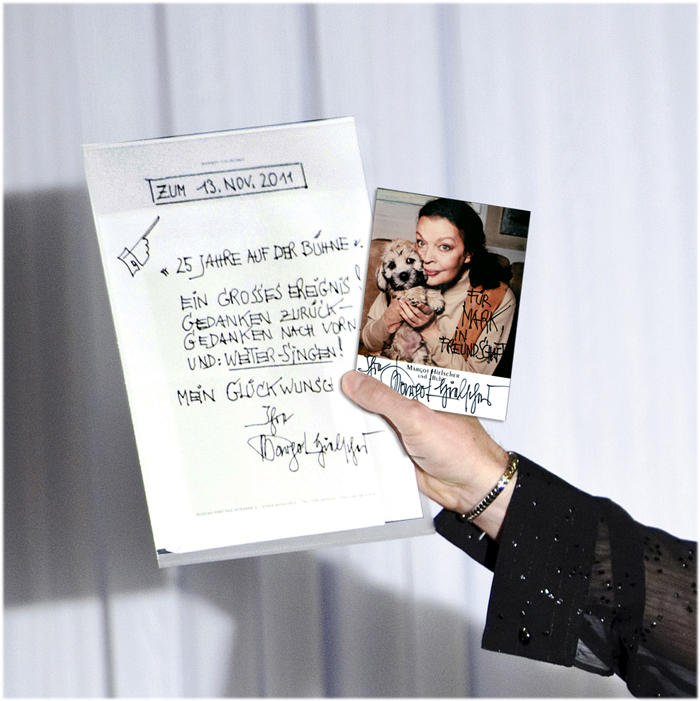 ZUM 13. NOV. 2011
"25 JAHRE AUF DER BÜHNE".
EIN GROSSES EREIGNIS!
GEDANKEN ZURÜCK –
GEDANKEN NACH VORN
UND: WEITER-SINGEN!
MEIN GLÜCKWUNSC
Ihre
Margot Hielscher
FÜR
MARK
in
FREUNDSCHAFT
MARGOT HIELSCHER
und
Ihre
Margot Hielscher